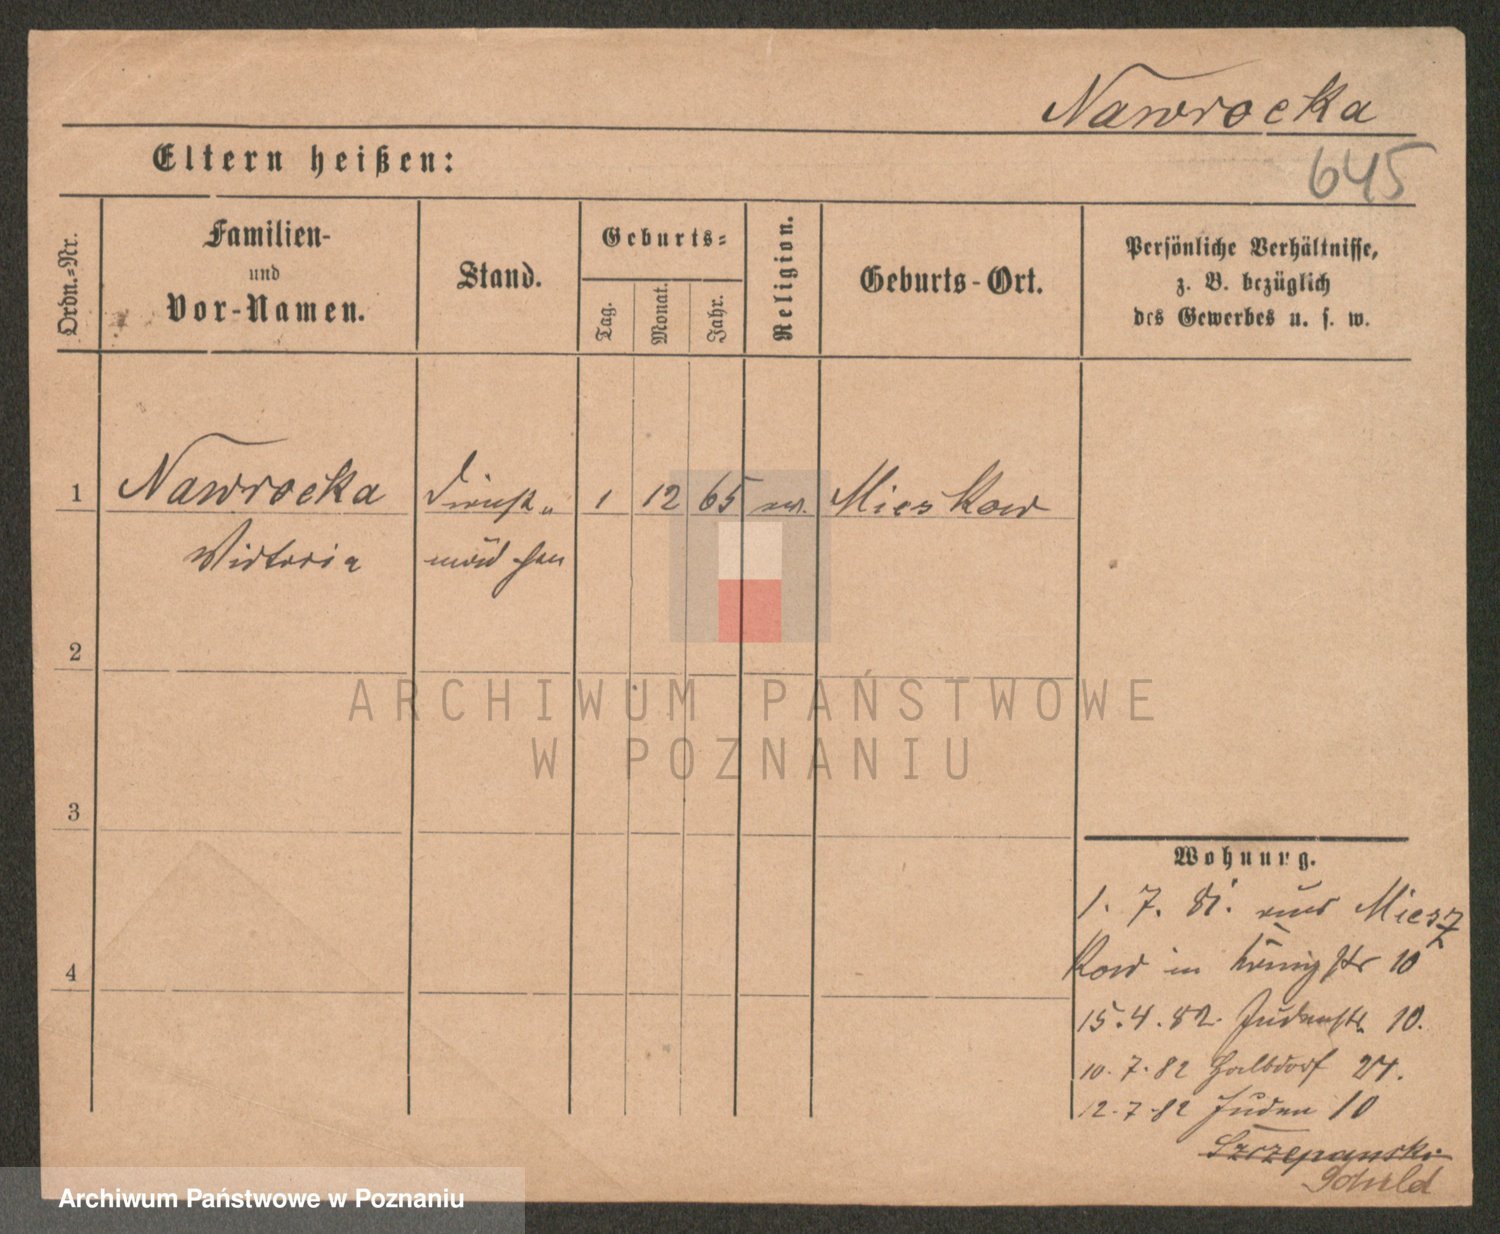 Nawrocka
645
Eltern heißen:
Ordn.=Nr.
Familien-
und
Vor-Namen.
Stand.
Geburts=
Tag.
Monat.
Jahr.
Religion.
Geburts-Ort.
Persönliche Verhältnisse,
z. B. bezüglich
des Gewerbes u. s. w.
1
Nawrocka
Dienst„
1
12
65
Mieskow
Victoria
mädchen
2
ARCHIWUM PAŃSTWOWE
W POZNANIU
3
Wohnung.
1. 7. 81. aus Miesz
kow in Königstr 10
15.4.82. Judenstr 10.
10.7.82 Halbdorf 24.
12.7.82 Juden 10
4
Szczepanski
Archiwum Państwowe w Poznaniu